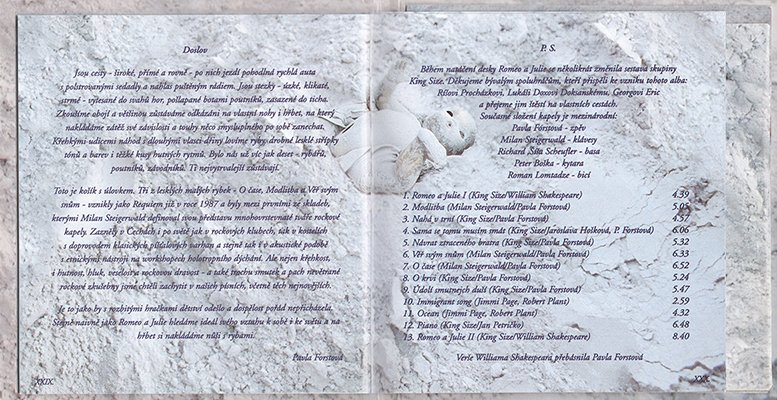 Doslov
Jsou cesty - široké, přímé a rovné - po nich jezdí pohodlná rychlá auta
s polstrovanými sedadly a nahlas puštěným rádiem. Jsou stezky - úzké, klikaté,
strmé - vytesané do svahů hor, pošlapané botami poutníků, zasazené do ticha.
Zkoušíme obojí a většinou zůstáváme odkázáni na vlastní nohy i hřbet, na který
nakládáme zátěž své závislosti a touhy něco smysluplného po sobě zanechat.
Křehkými udicemi náhod i dlouhými vlasci dřiny lovíme ryby drobné lesklé střípky
tónů a barev i těžké kusy hutných rytmů. Bylo nás už víc jak deset - rybářů,
poutníků, závodníků. Ti nejvytrvalejší zůstávají.
Toto je košík s úlovkem. Tři z lesklých malých rybek - O čase, Modlitba a Věř svým
snům - vznikly jako Requiem již v roce 1987 a byly mezi prvními ze skladeb,
kterými Milan Steigerwald definoval svou představu mnohovrstevnaté tváře rockové
kapely. Zazněly v Čechách i po světě jak v rockových klubech, tak v kostelích
s doprovodem klasických píšťalových varhan a stejně tak i v akustické podobě
s etnickými nástroji na workshopech holotropního dýchání. Ale nejen křehkost,
i hutnost, hluk, veselost a rockovou dravost - a také trochu smutek a pach nevětrané
rockové zkušebny jsme chtěli zachytit v našich písních, včetně těch nejnovějších.
Je to jako by s rozbitými hračkami dětství odešlo a dospělost pořád nepřicházela.
Stejně naivně jako Romeo a Julie hledáme ideál svého vztahu k sobě i ke světu a na
hřbet si nakládáme nůši s rybami.
Pavla Forstová
XXIX.
P. S.
Během natáčení desky Romeo a Julie se několikrát změnila sestava skupiny
King Size. Děkujeme bývalým spoluhráčům, kteří přispěli ke vzniku tohoto alba:
Ríšovi Procházkovi, Lukáši Doxovi Doksanskému, Georgovi Eric
a přejeme jim štěstí na vlastních cestách.
Současné složení kapely je mezinárodní:
Pavla Forstová - zpěv
Milan Steigerwald - klávesy
Richard Šíša Scheufler - basa
Peter Boška - kytara
Roman Lomtadze - bicí
1. Romeo a Julie I (King Size/William Shakespeare) 4.39
2. Modlitba (Milan Steigerwald/Pavla Forstová) 5.05
3. Nahá v trní (King Size/Pavla Forstová) 4.57
4. Sama se tomu musím smát (King Size/Jaroslava Holková, P. Forstová) 6.06
5. Návrat ztraceného bratra (King Size/Pavla Forstová) 5.32
6. Věř svým snům (Milan Steigerwald/Pavla Forstová) 6.33
7. O čase (Milan Steigerwald/Pavla Forstová) 6.52
8. O krvi (King Size/Pavla Forstová) 5.24
9. Údolí smutnejch duší (King Size/Pavla Forstová) 5.47
10. Immigrant song (Jimmi Page, Robert Plant) 2.59
11. Ocean (Jimmi Page, Robert Plant) 4.32
12. Piano (King Size/Jan Petričko) 6.48
13. Romeo a Julie II (King Size/William Shakespeare) 8.40
Verše Williama Shakespeara přebásnila Pavla Forstová
XXX.